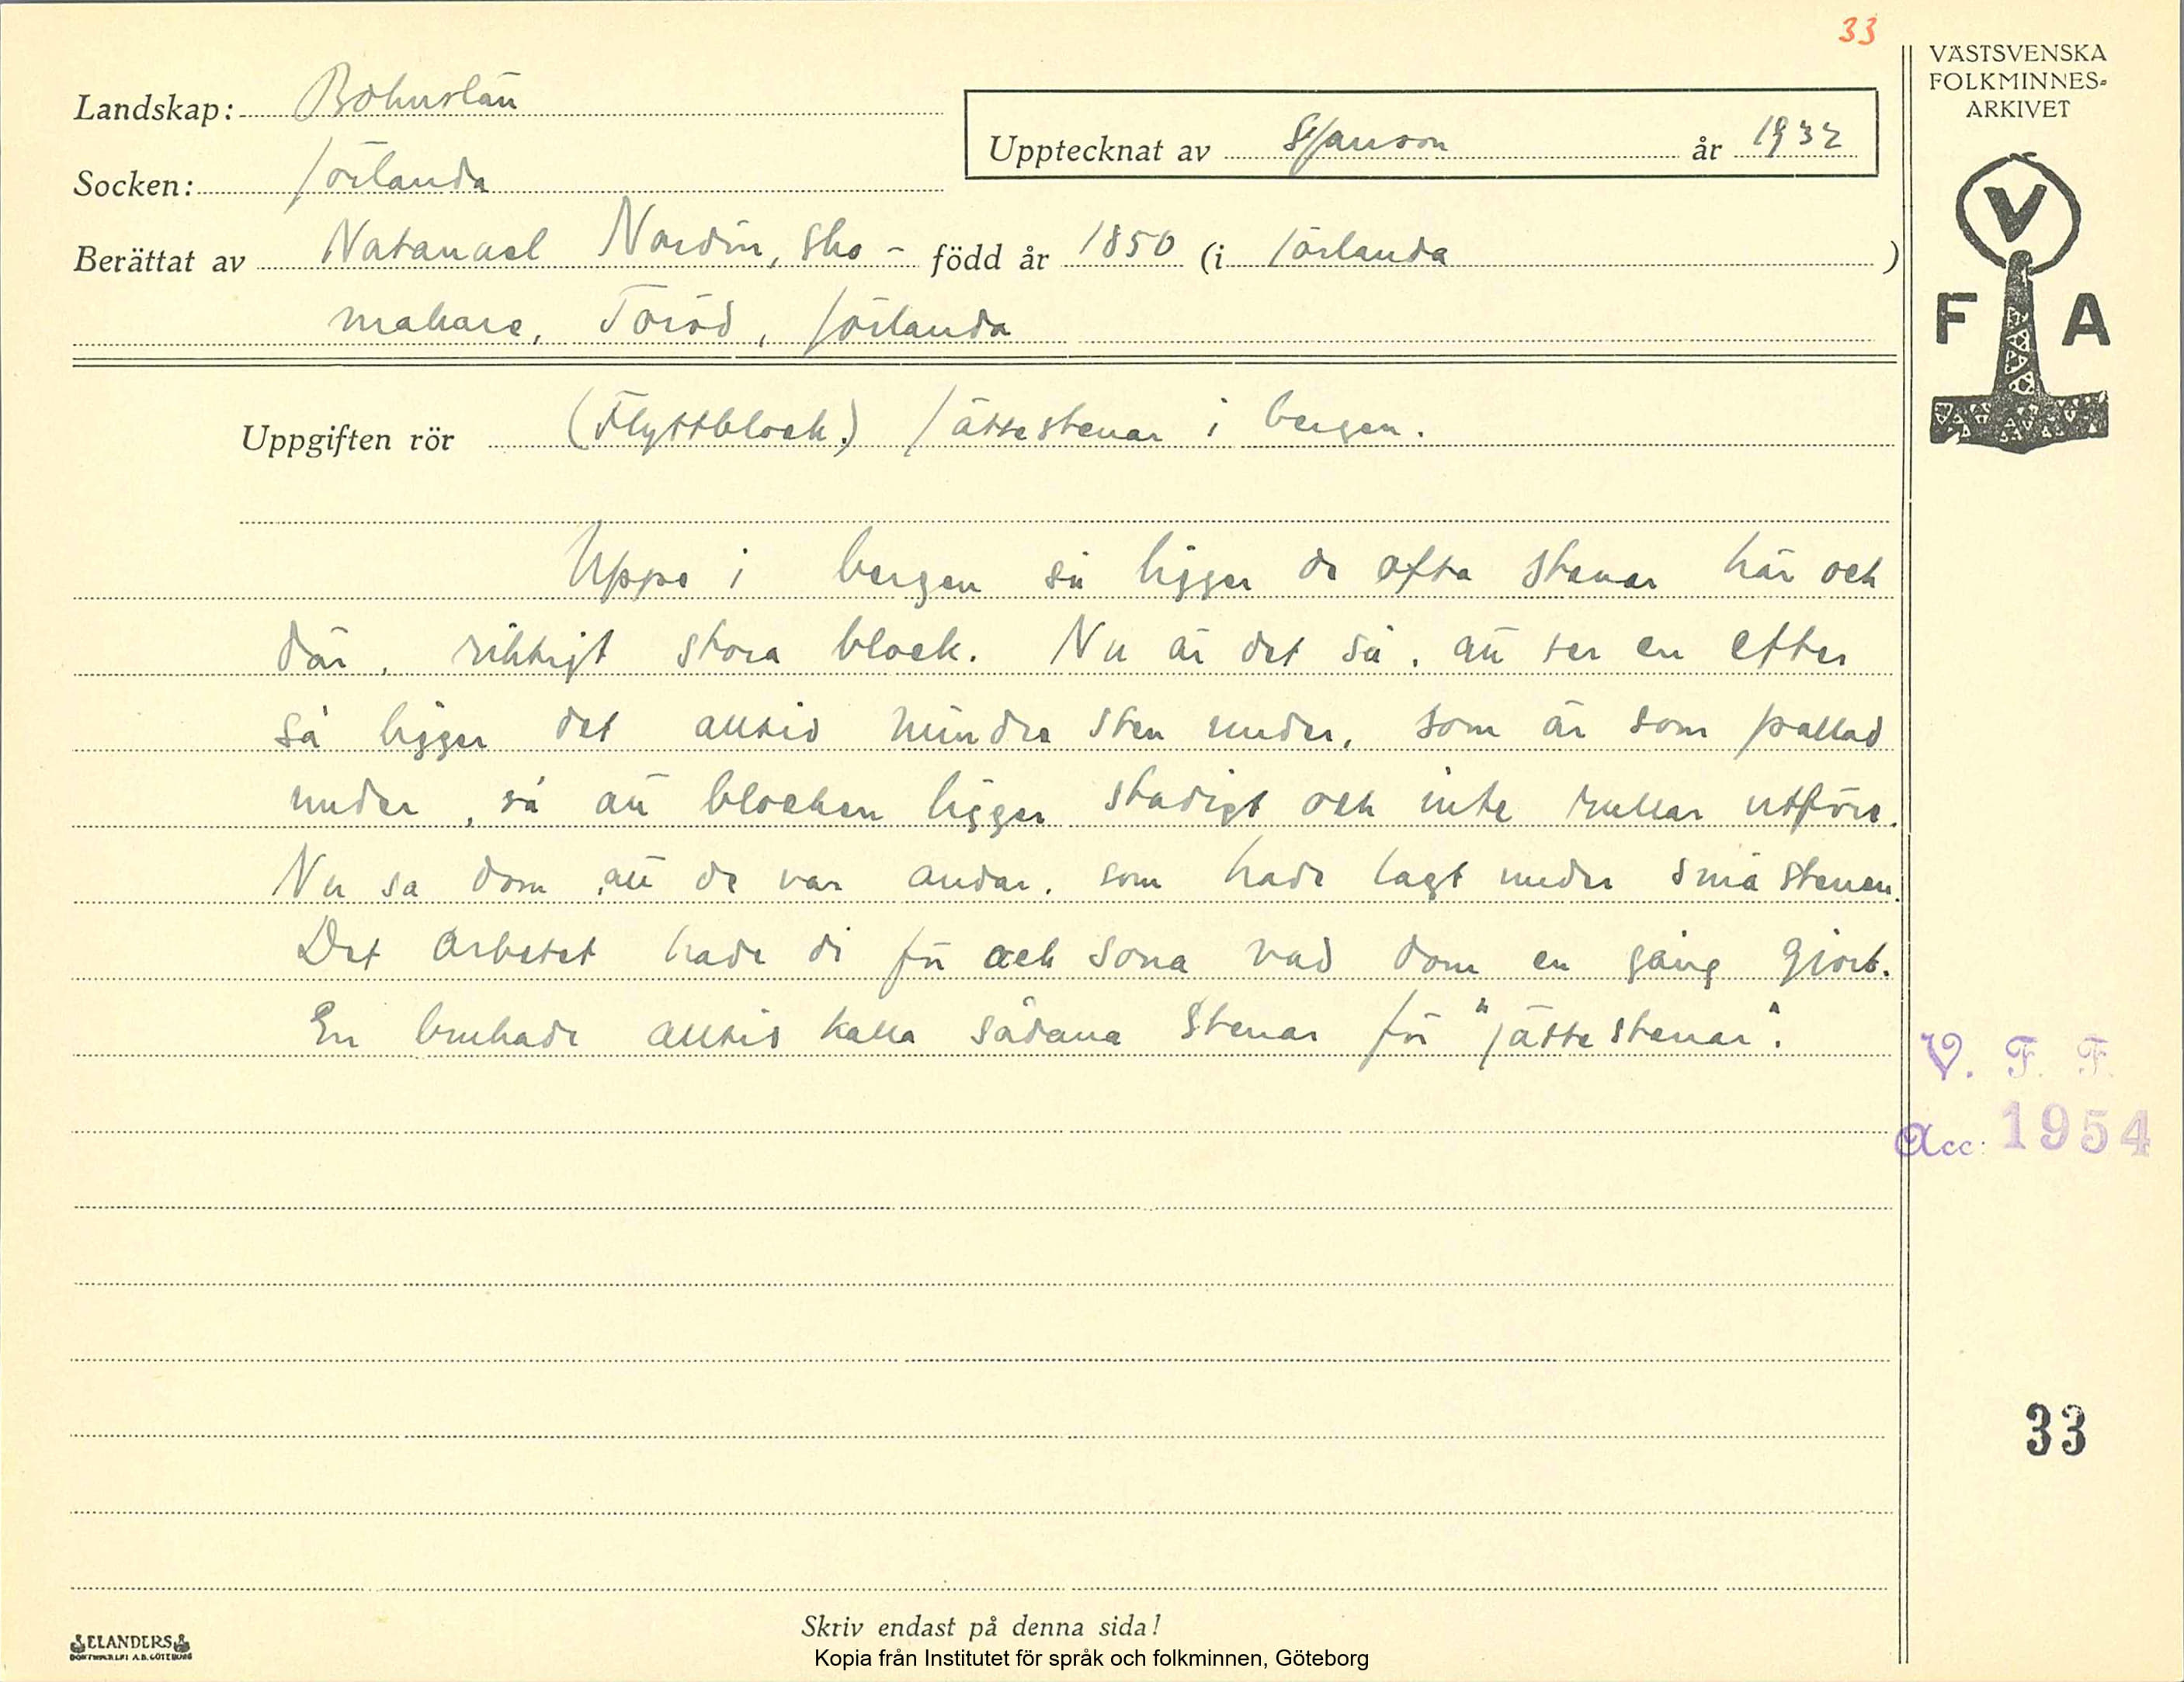 33
VÄSTSVENSKA
FOLKMINNES-
ARKIVET
Landskap: Bohuslän
Upptecknat av SJanson år 1932
Socken: Jörlanda
Berättat av Natanael Nordin, sko- född år 1850 (i Jörlanda)
makare, Toröd, Jörlanda
V
F A
Uppgiften rör (Flyttblock.) Jättestenar i bergen.
Uppe i bergen så ligger de ofta stenar här och
där, riktigt stora block. Nu är det så, att ser en efter
så ligger det alltid mindre sten under, som är som pallad
under, så att blocken ligger stadigt och inte rullar utför.
Nu sa dom, att de var andar, som hade lagt under småstenen.
Det arbetet hade di för och sona vad dom en gång gjort.
En brukade alltid kalla sådana stenar för "jättestenar".
V. F. F.
Acc: 1954
33
Skriv endast på denna sida!
ELANDERS
Kopia från Institutet för språk och folkminnen, Göteborg